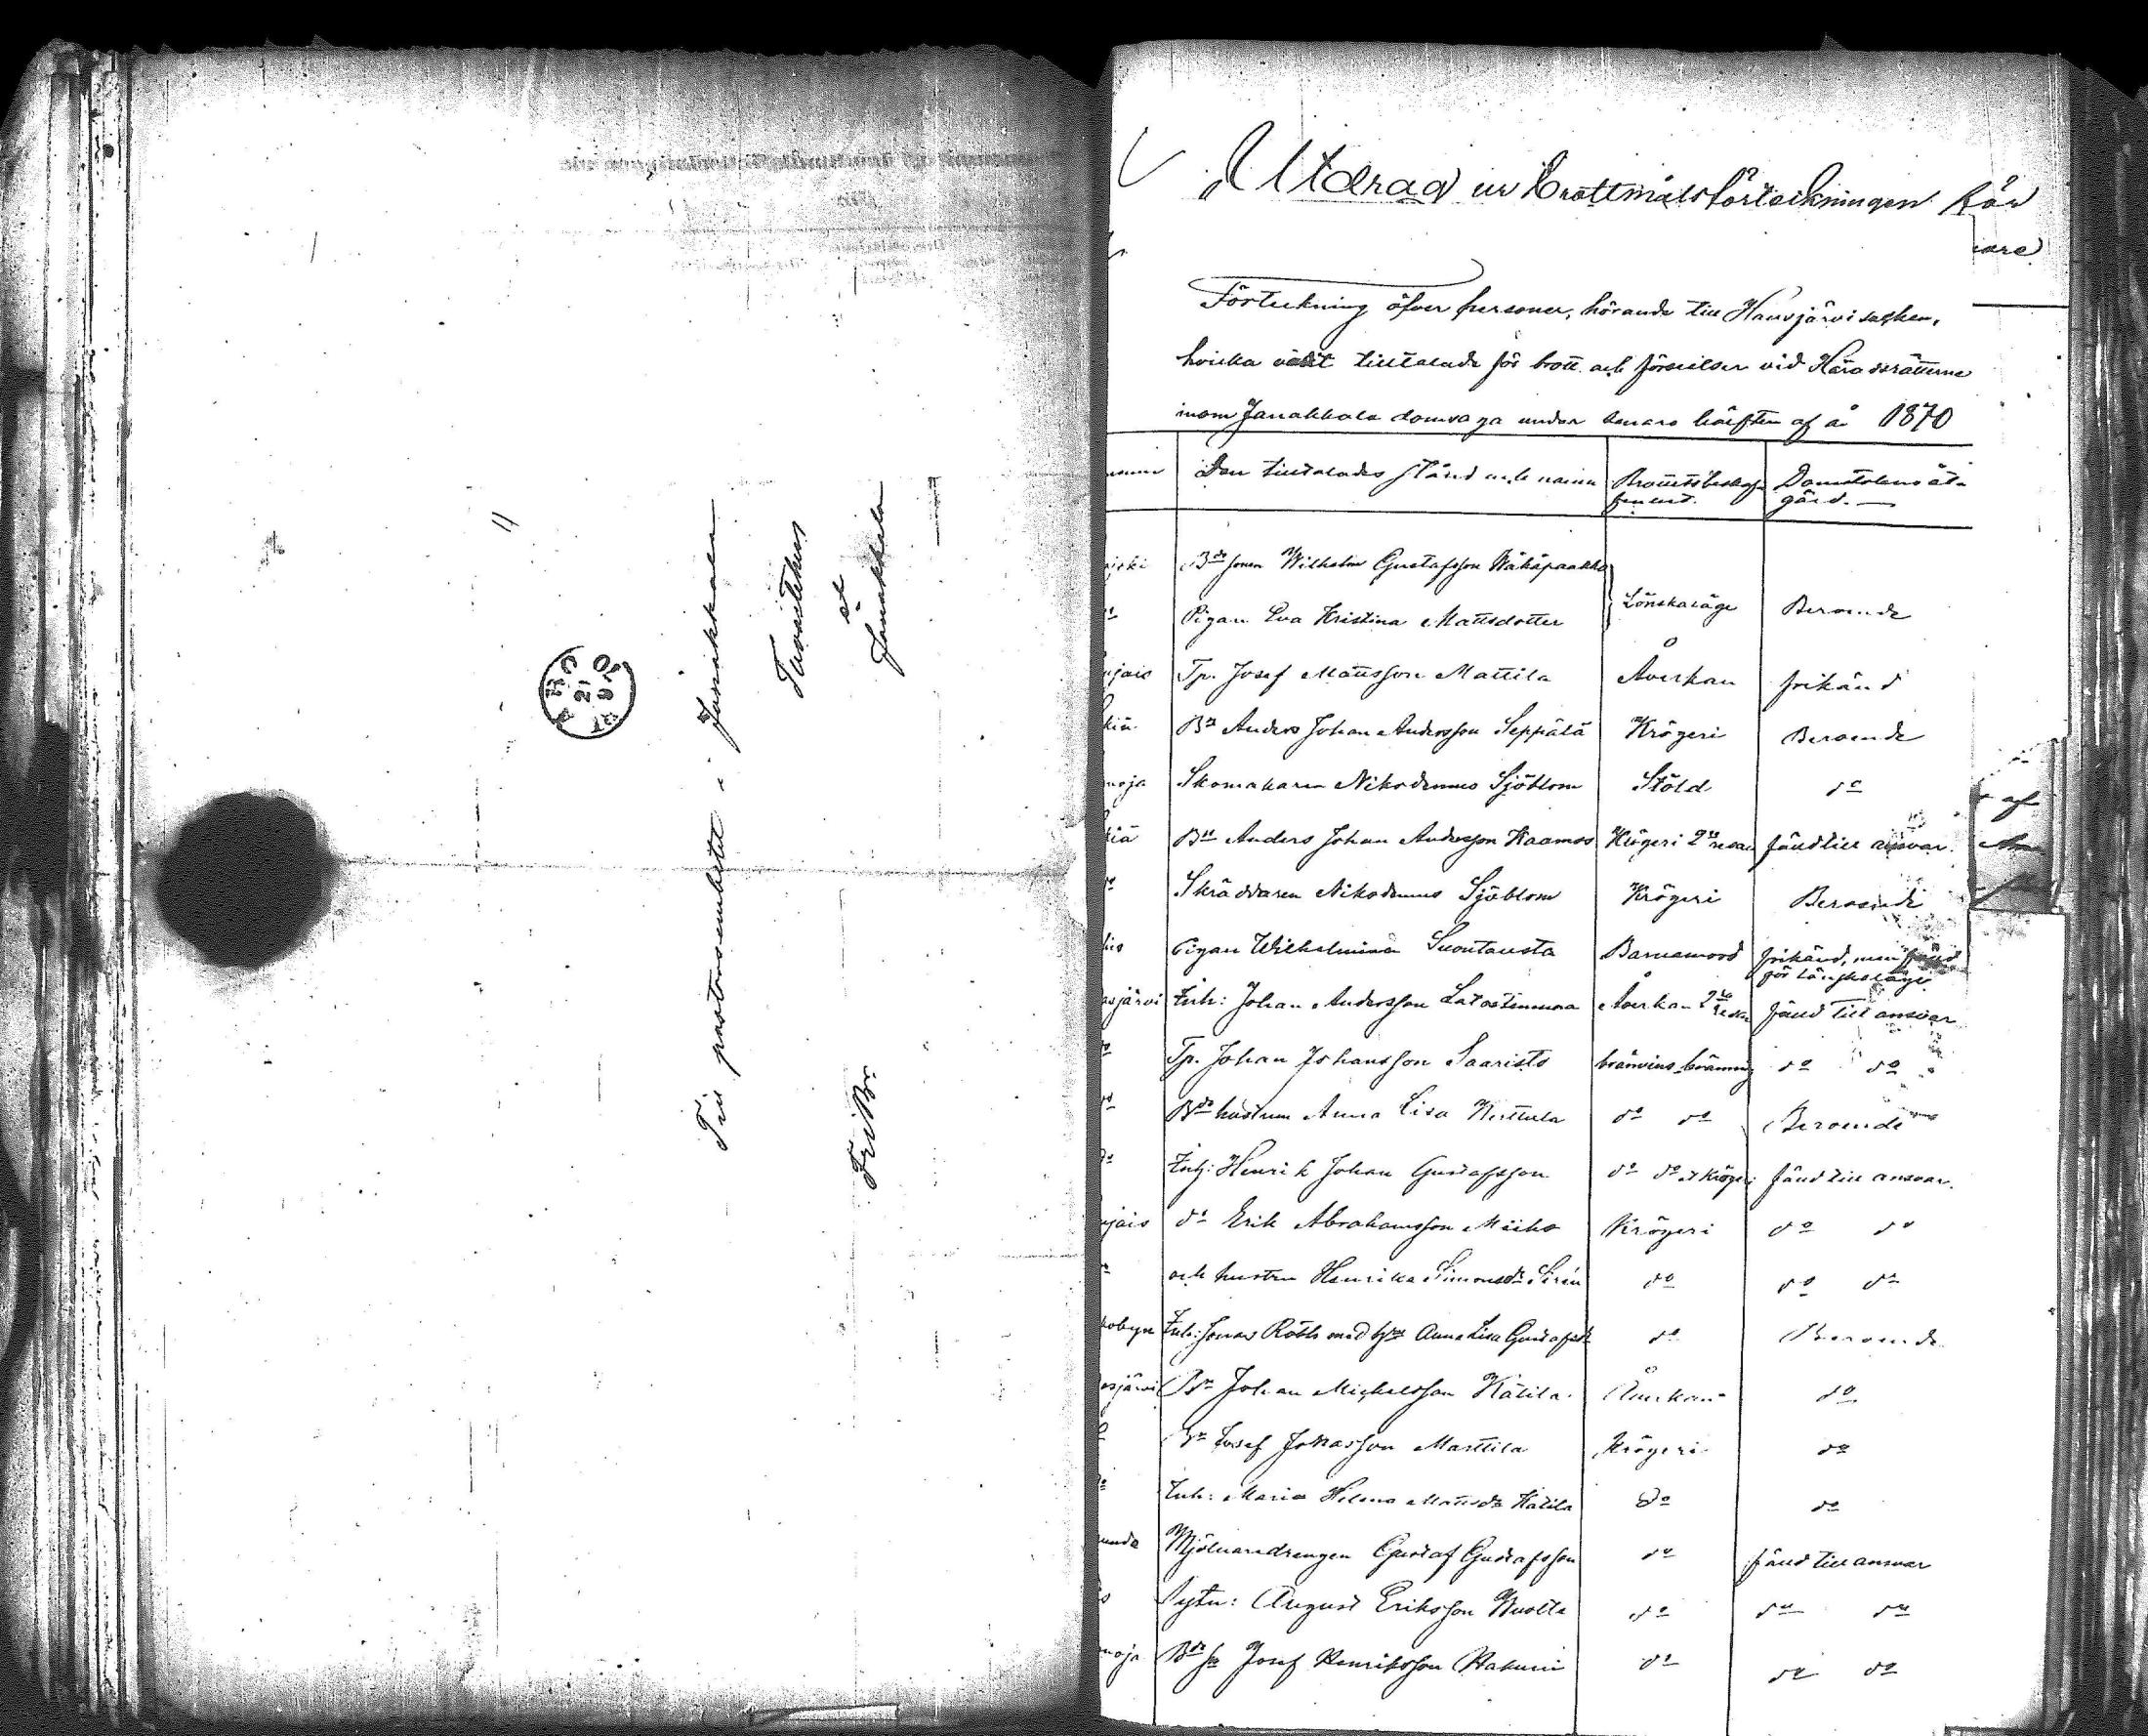 Till pastorsembetet i Janakkala
Tavastehus
et
Janakkala
Fri Br.
21 9
70
Utdrag ur brottmålsförteckningen för
Förteckning öfver personer, hörande till Hausjärvi socken,
hvilka varit tilltalade för brott och förseelser vid Häradsrätterne
inom Janakkala domsaga under senare hälften af år 1870
Den tilltalades stånd och namn Brottets beskaffenhet. Domstolens åtgärd.
Bde sonen Wilhelm Gustafsson Wähäpaakko
Pigan Eva Kristina Mattsdotter Lönskaläge Beroende
jais Tp. Josef Mattsson Mattila Åverkan frikänd
kiä Bn Anders Johan Andersson Seppälä Krögeri Beroende
noja Skomakaren Nikodemus Sjöblom Stöld do
kiä Bn Anders Johan Andersson Kaamos Krögeri 2dra resan fäld till ansvar.
do Skräddaren Nikodemus Sjöblom Krögeri Beroende
Pigan Wilhelmina Suontausta Barnamord frikänd, men fäld för lönskaläge
asjärvi Inh: Johan Andersson Åverkan 2dra resan fäld till ansvar
do Tp. Johan Johansson Saaristo bränvinsbränning do do
do Bde hustrun Anna Lisa Kerttula do do Beroende
do Inh: Henrik Johan Gustafsson do do o Krögeri fäld till ansvar.
jais do Erik Abrahamsson Krögeri do do
do och hustru Henrika Simonsdr Sirén do do do
kobyn Inh: Jonas Röth med hu Anna Lisa Gustafsdr do Beroende
asjärvi Bn Johan Michelsson Kätilä Åverkan do
do Bn Josef Jonasson Marttila Krögeri do
do Inh: Maria Helena Mattsdr Kätilä do do
unda Mjölnaredrengen Gustaf Gustafsson do fäld till ansvar
Sytn: August Eriksson do do do
noja Bde sn Josef Henriksson Hakuni do do do